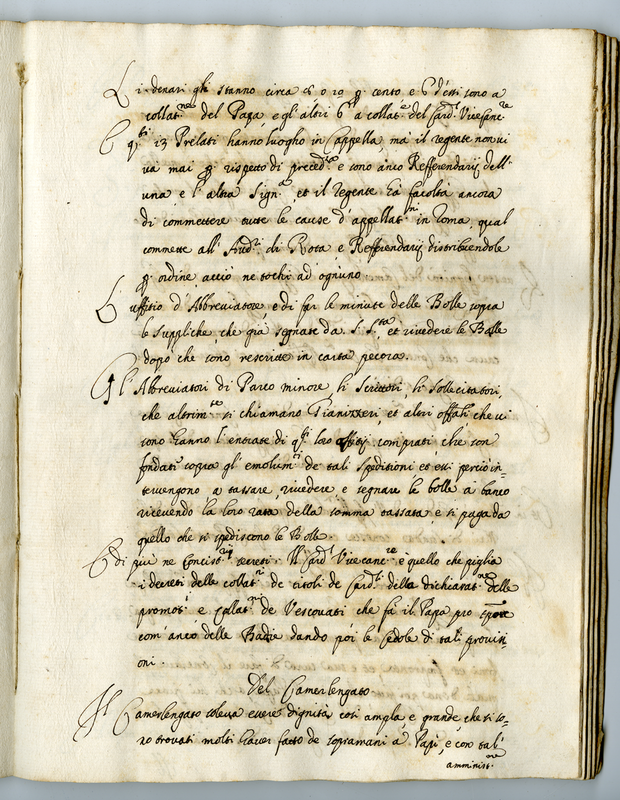 Li denari gli stanno circa 8 o 10 p cento e 6 d'essi sono a
collat.ne del Papa, e gl'altri 6 a collat.e del Card.l Vicecanc.re
E q.sti 13 Prelati hanno luogo in Cappella, mà il regente non vi
và mai p rispetto di preced.za e sono anco Refferendarij dell'
una, e l'altra Sign.a, et il regente hà facoltà ancora
di commettere tutte le cause d'appellat.ni in Roma, qual
commette all'Aud.ri di Rota, e Refferendarij distribuendole
p ordine acciò ne tochi ad ogniuno
L'uffitio d'Abbreviatore, e di far le minute delle Bolle sopra
le suppliche, che già segnate da S. S.ta, et rivedere le Bolle
dopò che sono rescritte in carta pecora.
Gl'Abbreviatori di Parco minore, li Scrittori, li sollecitatori,
che altrim.te si chiamano Gianizzeri, et altri offitij che vi
sono hanno l'entrate di q.sti loro offitij comprati, che son
fondati sopra gl'emolum.ti de tali speditioni et essi perciò in=
tervengono, a tassare, rivedere e segnare le bolle a banco
ricevendo la loro rata della somma tassata, e si paga da
quello che si spediscono le Bolle.
E di più ne Concist.rij secreti. Il Card.l Vicecanc.re è quello che piglia
i decreti delle collat.ni de titoli de Card.li della dichiarat.ne delle
promot.i e collat.ni de Vescovati che fà il Papa pro
com'anco delle Badie dando poi le cedole di tali provisi=
oni.
Del Camerlengato
Il Camerlengato soleva essere dignità così ampla e grande, che si so=
no trovati molti haver fatto de sopramani a Papi, e con tali
amminist.ne